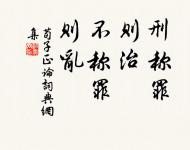 刑称罪
则治
不称罪
则亂
荀子正论詞典網
集